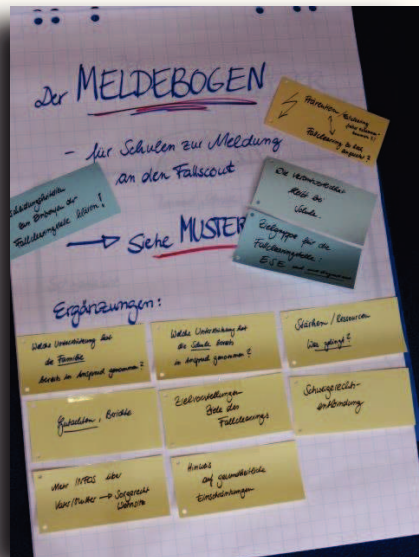 Der MELDEBOGEN
- für Schulen zur Meldung
an den Fallscout
→ Siehe MUSTER
Prävention /
Fallclearing
zum Einbeziehen der
Fallclearingstelle
Die
bleibt bei
Schule.
Zielgruppe für die
Fallclearingstelle:
ESE
Ergänzungen:
Welche Unterstützung hat
die Familie
bereits in Anspruch genommen?
Welche Unterstützung hat
die Schule bereits
in Anspruch genommen?
Stärken / Ressourcen
Was gelingt?
Gutachten, Berichte
Zielvorstellungen
Ziele des
Fallclearings
Schweigerecht-
entbindung
Mehr INFOS über
Vater/Mutter → Sorgerecht
Hinweis
auf gesundheitliche
Einschränkungen